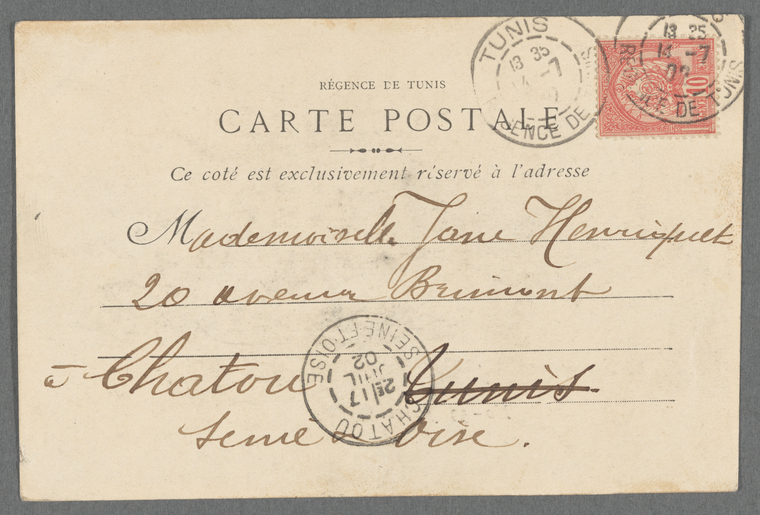 TUNIS
13 35
14 -7
RÉGENCE DE TUNIS
13 35
14 -7
02
RÉGENCE DE TUNIS
10
RÉGENCE DE TUNIS
CARTE POSTALE
Ce coté est exclusivement réservé à l'adresse
Mademoiselle Jane Henriquet
20 avenue Brimont
à Chatou Tunis.
Seine & Oise.
CHATOU
2E 17
JUIL
02
SEINE-ET-OISE